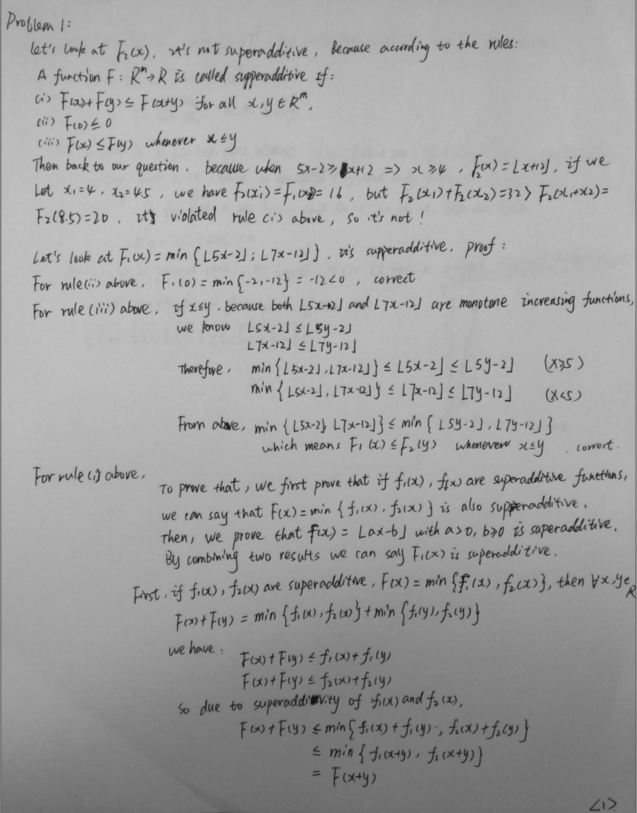 Problem 1:
Let's look at F₂(x), it's not superadditive, Because according to the rules:
A function F: Rᵐ→R is called supperadditive if:
(i) F(x)+F(y) ≤ F(x+y) for all x,y ∈ Rᵐ,
(ii) F(0) ≤ 0
(iii) F(x) ≤ F(y) whenever x ≤ y
Then back to our question, because when 5x-2 ≥ x+12 => x ≥ 4, F₂(x) = ⌊x+12⌋, if we
Let x₁=4, x₂=4.5, we have F₂(x₁) = F₂(x₂) = 16, but F₂(x₁)+F₂(x₂) = 32 > F₂(x₁+x₂) =
F₂(8.5) = 20, it's violated rule (i) above, so it's not!
Let's look at F₁(x) = min {⌊5x-2⌋, ⌊7x-12⌋}, it's supperadditive, proof:
For rule (ii) above, F₁(0) = min{-2,-12} = -12 < 0, correct
For rule (iii) above, if x≤y, because both ⌊5x-2⌋ and ⌊7x-12⌋ are monotone increasing functions,
we know ⌊5x-2⌋ ≤ ⌊5y-2⌋
⌊7x-12⌋ ≤ ⌊7y-12⌋
Therefore, min{⌊5x-2⌋, ⌊7x-12⌋} ≤ ⌊5x-2⌋ ≤ ⌊5y-2⌋ (x≥5)
min{⌊5x-2⌋, ⌊7x-12⌋} ≤ ⌊7x-12⌋ ≤ ⌊7y-12⌋ (x<5)
From above, min{⌊5x-2⌋, ⌊7x-12⌋} ≤ min{⌊5y-2⌋, ⌊7y-12⌋}
which means F₁(x) ≤ F₁(y) whenever x≤y, correct.
For rule (i) above,
To prove that, we first prove that if f₁(x), f₂(x) are superadditive functions,
we can say that F(x) = min{f₁(x), f₂(x)} is also supperadditive.
Then, we prove that F(x) = ⌊ax-b⌋ with a>0, b≥0 is superadditive.
By combining two results we can say F₁(x) is superadditive.
First, if f₁(x), f₂(x) are superadditive, F(x) = min{f₁(x), f₂(x)}, then ∀x,y∈R
F(x)+F(y) = min{f₁(x), f₂(x)} + min{f₁(y), f₂(y)}
we have:
F(x)+F(y) ≤ f₁(x)+f₁(y)
F(x)+F(y) ≤ f₂(x)+f₂(y)
so due to superadditivity of f₁(x) and f₂(x),
F(x)+F(y) ≤ min{f₁(x)+f₁(y), f₂(x)+f₂(y)}
≤ min{f₁(x+y), f₂(x+y)}
= F(x+y)
<1>